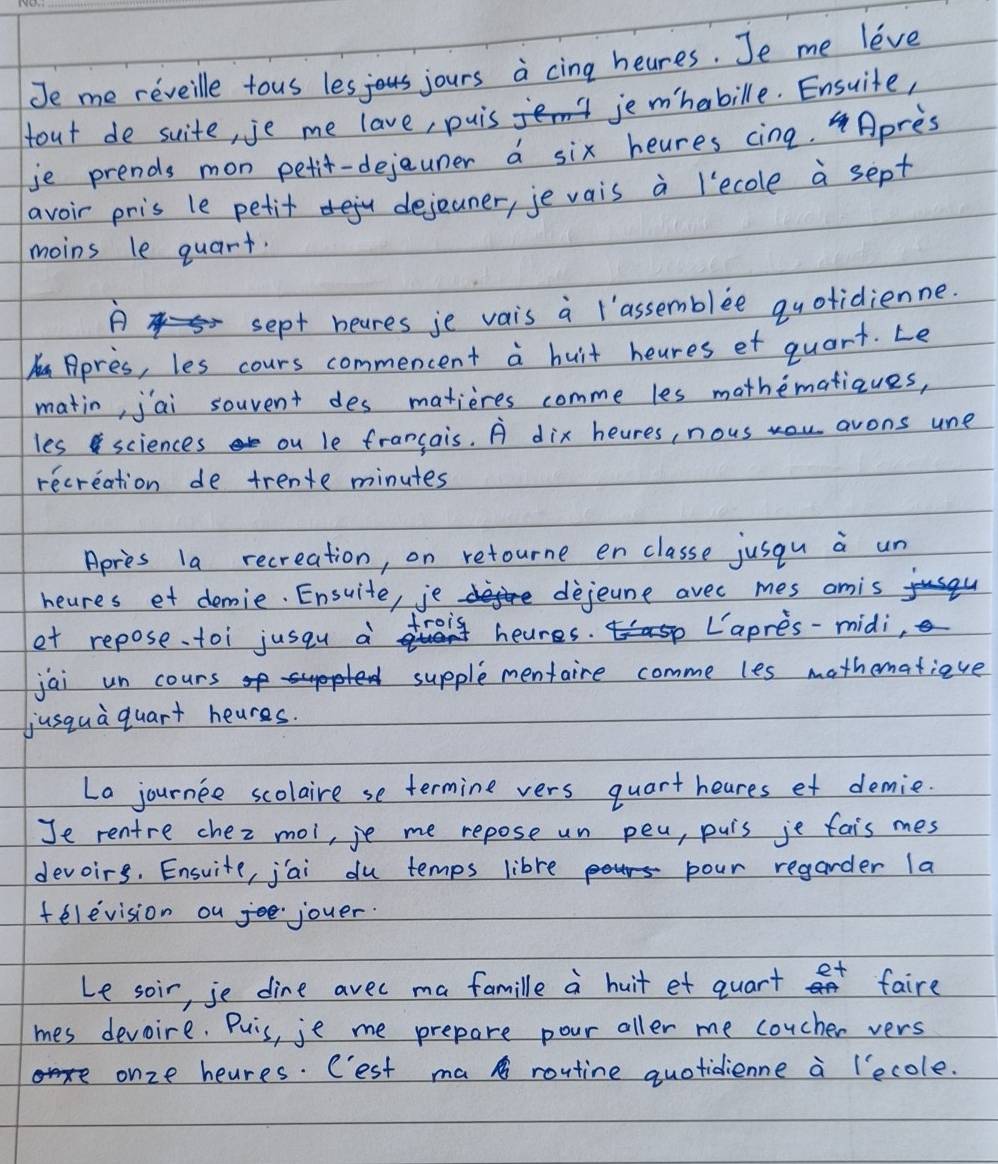 Je me réveille tous les jous jours à cinq heures. Je me léve
tout de suite, je me lave, puis jem' je m'habille. Ensuite,
je prends mon petit-dejeuner á six heures cinq. Après
avoir pris le petit deju dejeuner, je vais à l'ecole à sept
moins le quart.
À sept heures je vais à l'assemblée quotidienne.
Après, les cours commencent à huit heures et quart. Le
matin, j'ai souvent des matières comme les mathématiques,
les sciences ou le français. À dix heures, nous vou avons une
récréation de trente minutes
Après la recreation, on retourne en classe jusqu à un
heures et demie. Ensuite, je dèjeune avec mes amis jusqu
et repose-toi jusqu à quart trois heures. L'après-midi,
j'ai un cours supplémentaire comme les mathematique
jusquà quart heures.
La journée scolaire se termine vers quart heures et demie.
Je rentre chez moi, je me repose un peu, puis je fais mes
devoirs. Ensuite, j'ai du temps libre pours pour regarder la
télévision ou joe jouer.
Le soir, je dine avec ma famille à huit et quart et faire
mes devoire. Puis, je me prepare pour aller me coucher vers
onze heures. C'est ma routine quotidienne à l'ecole.